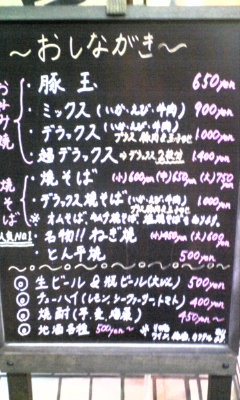 ～おしながき～
お好み焼
・豚玉 650yen
・ミックス(いか・えび・牛肉) 900yen
・デラックス(いか・えび・牛肉) 1000yen
・超デラックス 1400yen
焼そば
・焼そば (小)600yen (中)650yen (大)750yen
・デラックス焼そば(いか・えび・牛肉) 1000yen
※オムそば
人気No1
・名物!!ねぎ焼 (小)450yen (大)600yen
・とん平焼 500yen
◎生ビール&瓶ビール(大びん) 500yen
◎チューハイ(レモン、シークァーサー、トマト) 400yen
◎焼酎(芋、麦) 450yen～
◎地酒各種 500yen～